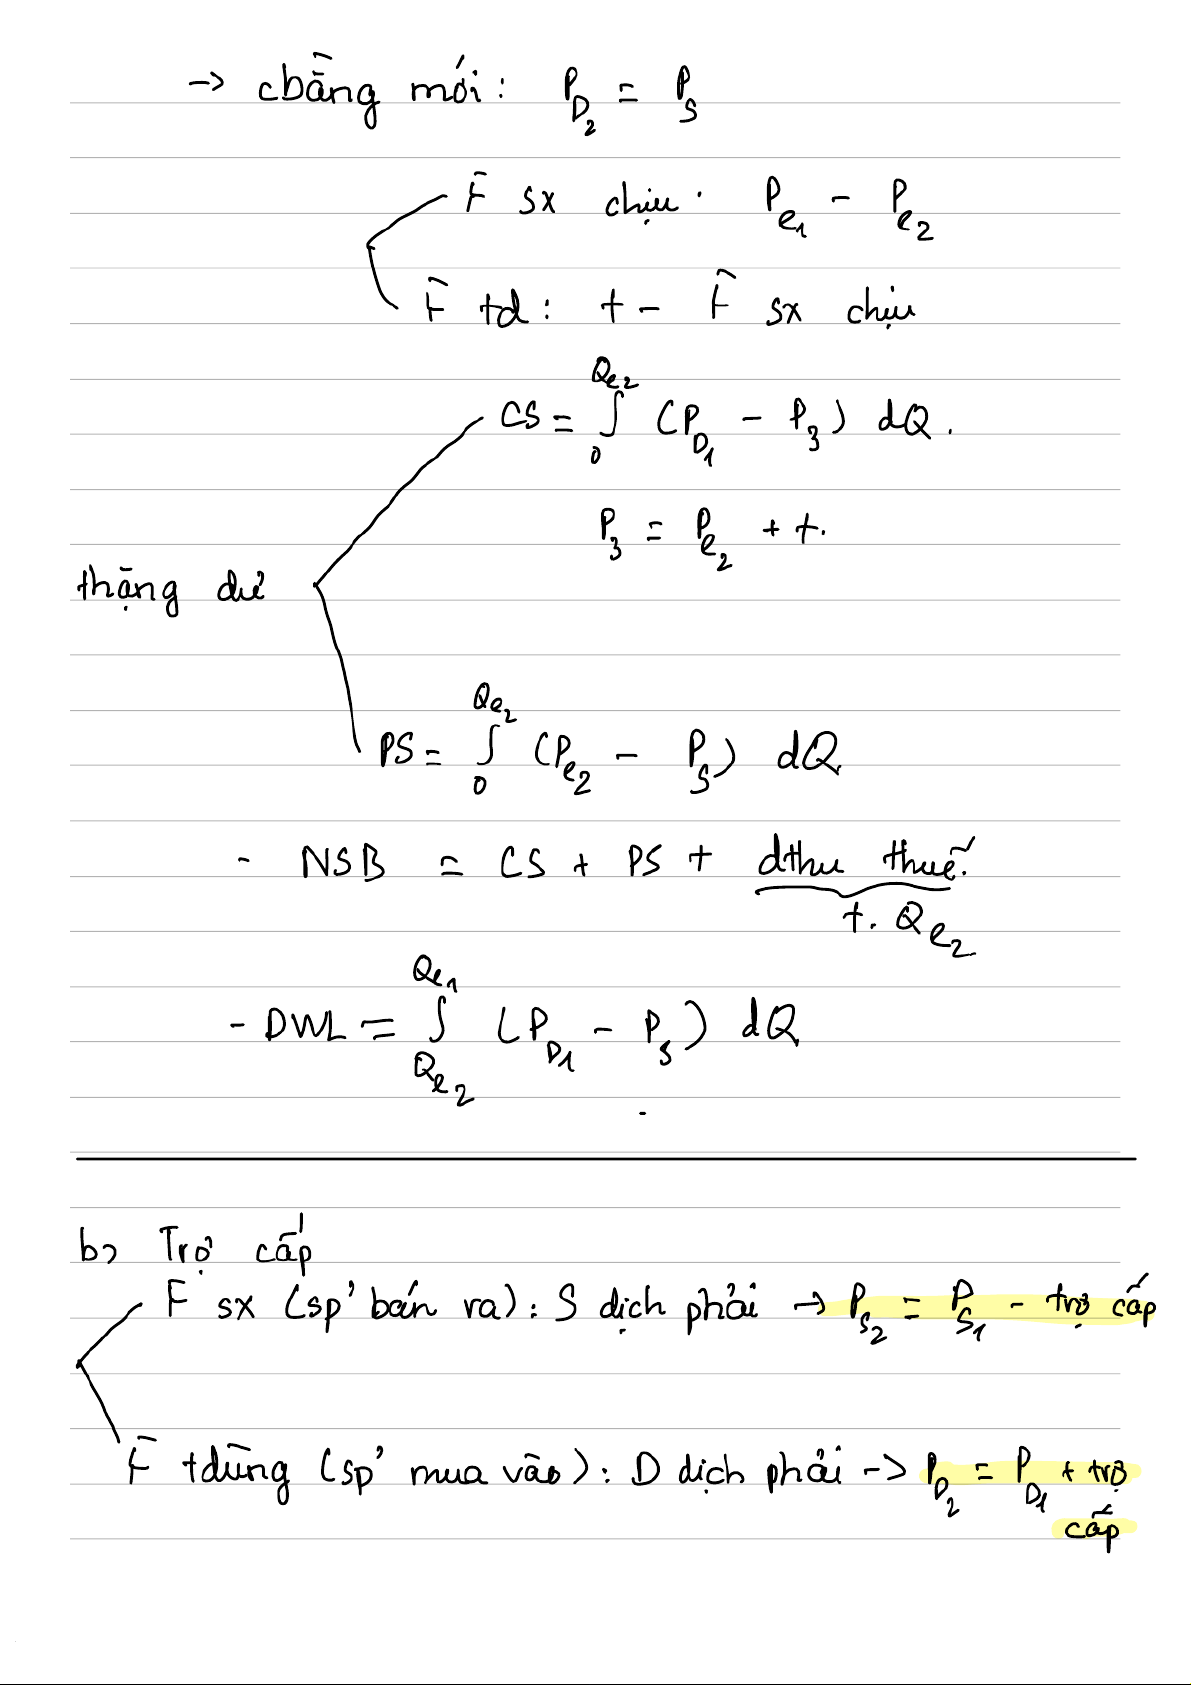 → cbằng mới: P_D₂ = P_S
F̄ sx chịu: P_e₁ - P_e₂
F̄ td: t - F̄ sx chịu
CS = ∫₀^Qe₂ (P_D₁ - P₃) dQ.
P₃ = P_e₂ + t.
thặng dư
PS = ∫₀^Qe₂ (P_e₂ - P_S) dQ
- NSB = CS + PS + dthu thuế.
t. Q_e₂
- DWL = ∫_Qe₂^Qe₁ (P_D₁ - P_S) dQ
b) Trợ cấp
F̄ sx (sp' bán ra): S dịch phải → P_S₂ = P_S₁ - trợ cấp
F̄ tdùng (sp' mua vào): D dịch phải -> P_D₂ = P_D₁ + trợ
cấp